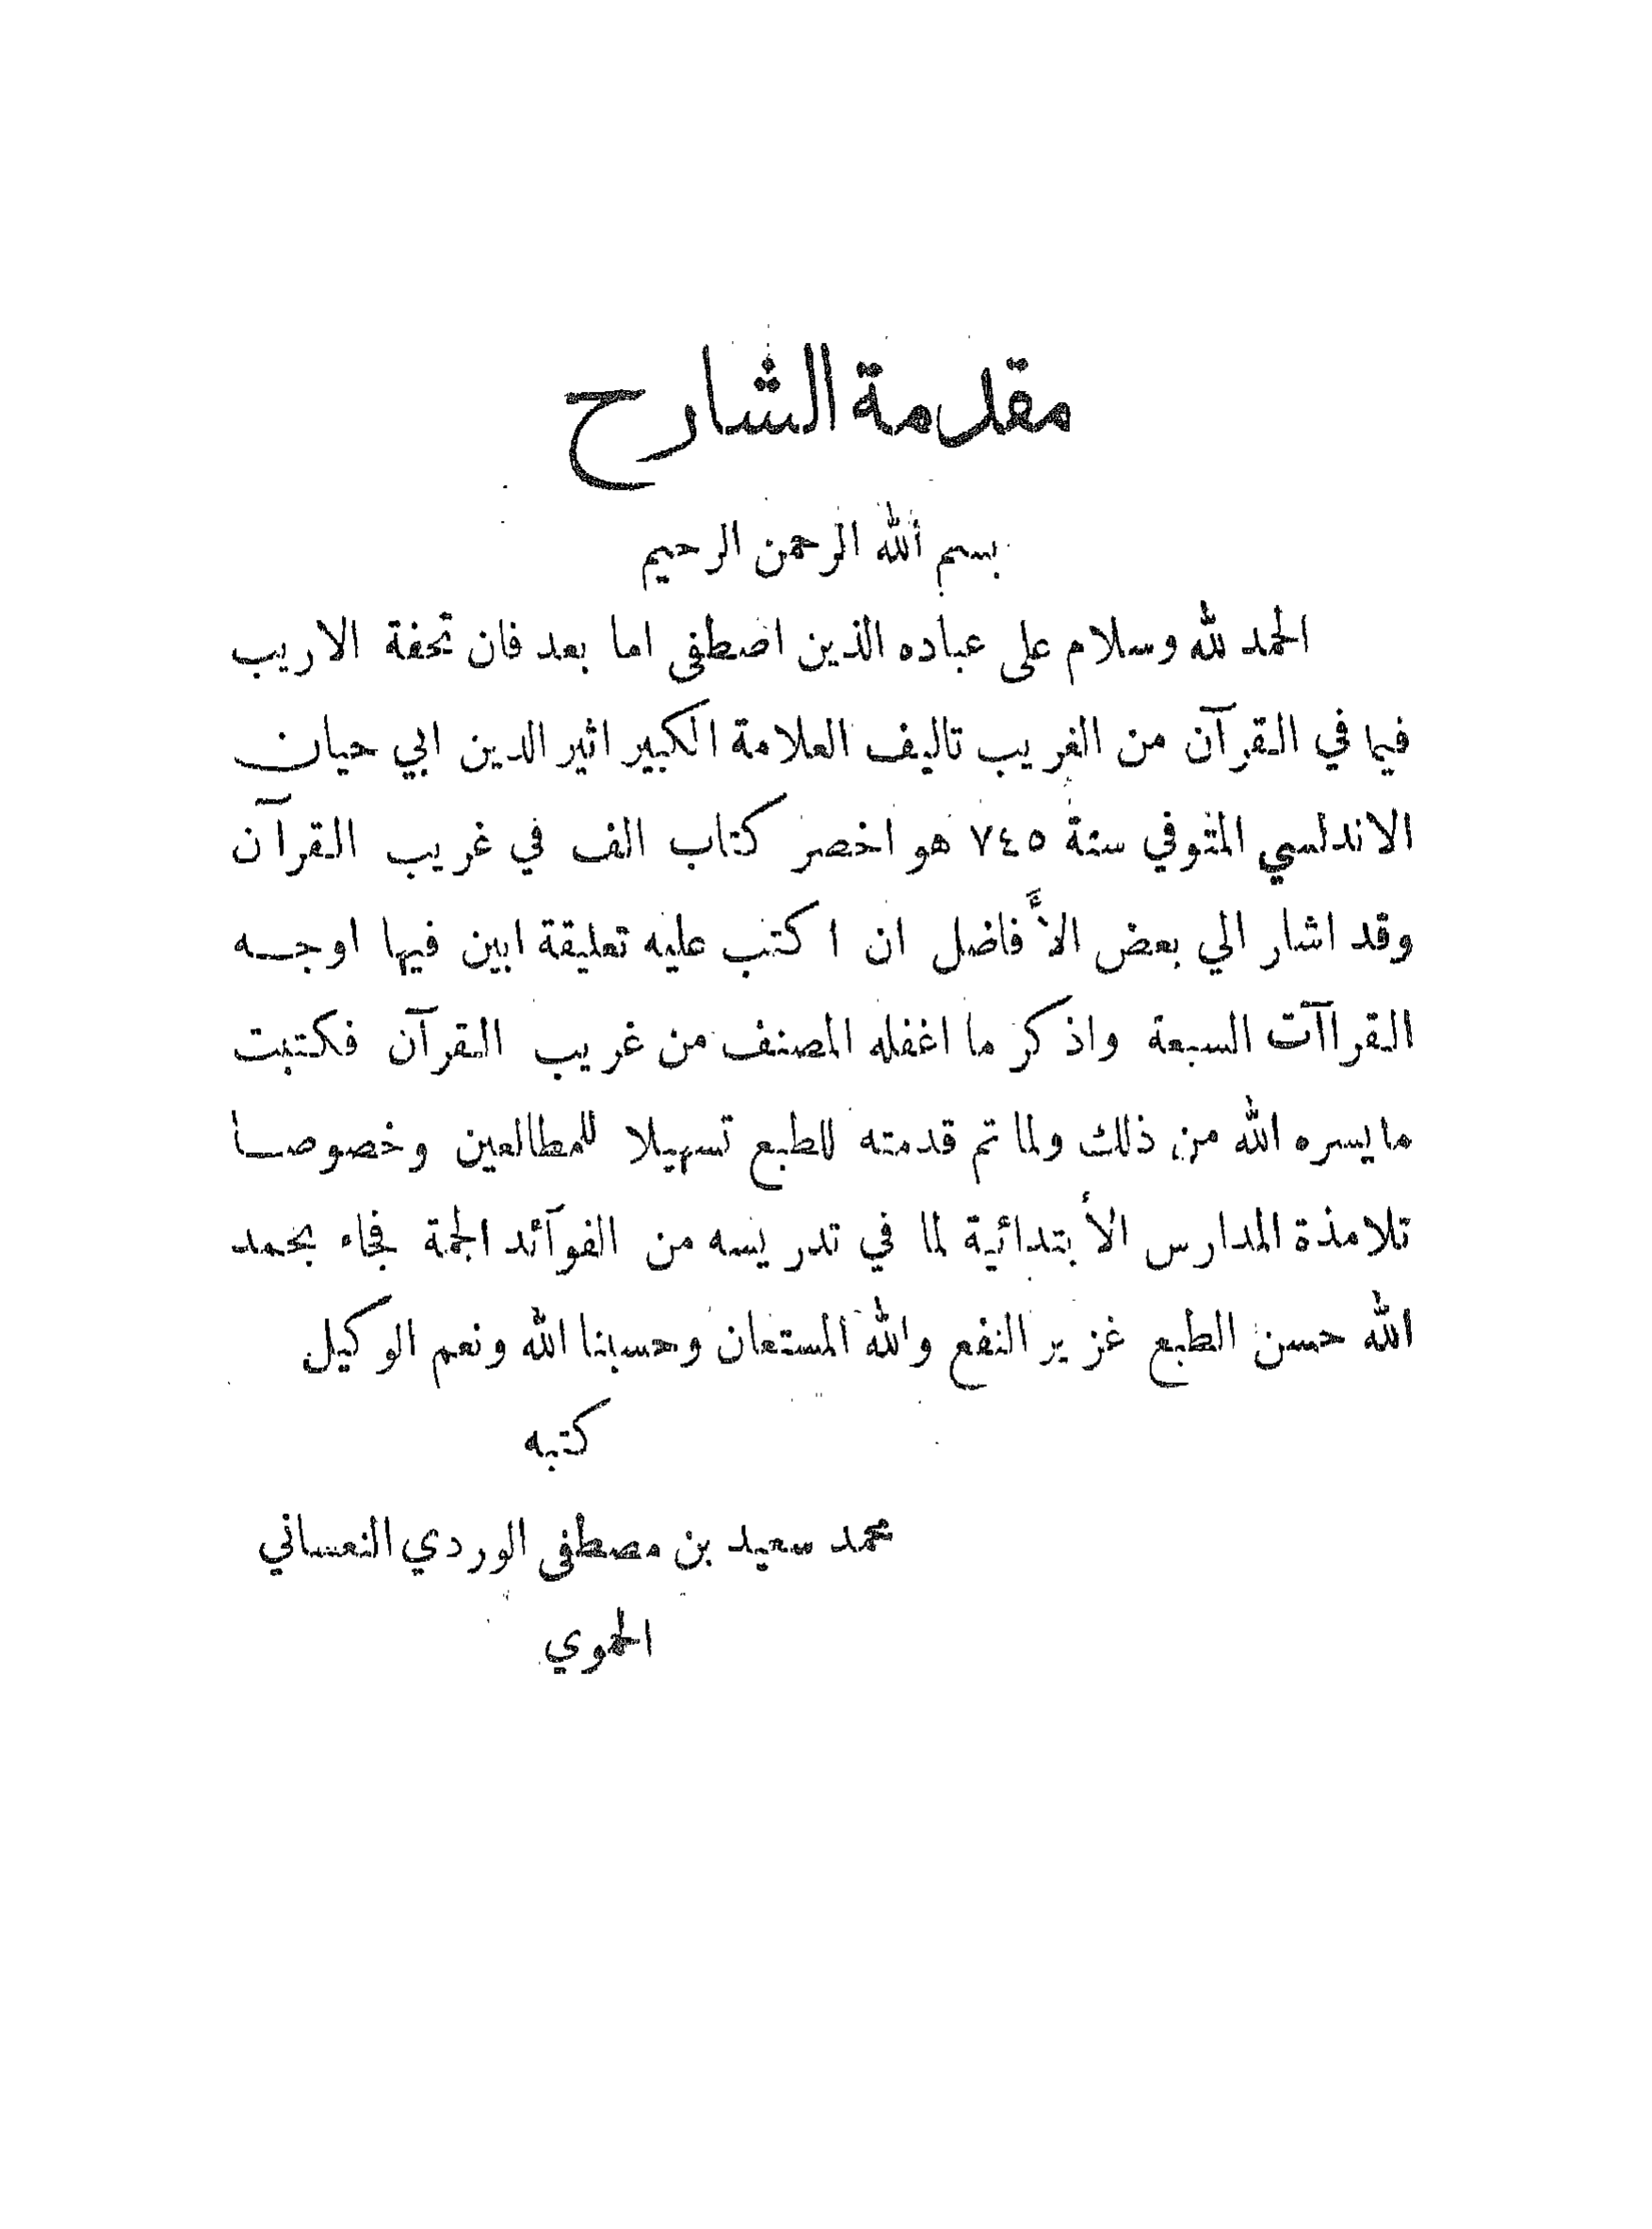 مقدمة الشارح
بسم الله الرحمن الرحيم
الحمد لله وسلام على عباده الذين اصطفى اما بعد فان تحفة الاريب
فيما في القرآن من الغريب تاليف العلامة الكبير اثير الدين ابي حيان
الاندلسي المتوفي سنة ٧٤٥ هو اخصر كتاب الف في غريب القرآن
وقد اشار الي بعض الأفاضل ان اكتب عليه تعليقة ابين فيها اوجه
القراآت السبعة واذكر ما اغفله المصنف من غريب القرآن فكتبت
ما يسره الله من ذلك ولما تم قدمته للطبع تسهيلا للمطالعين وخصوصا
تلامذة المدارس الأبتدائية لما في تدريسه من الفوآئد الجمة فجاء بحمد
الله حسن الطبع غزير النفع والله المستعان وحسبنا الله ونعم الوكيل
كتبه
محمد سعيد بن مصطفى الوردي النعساني
الحموي